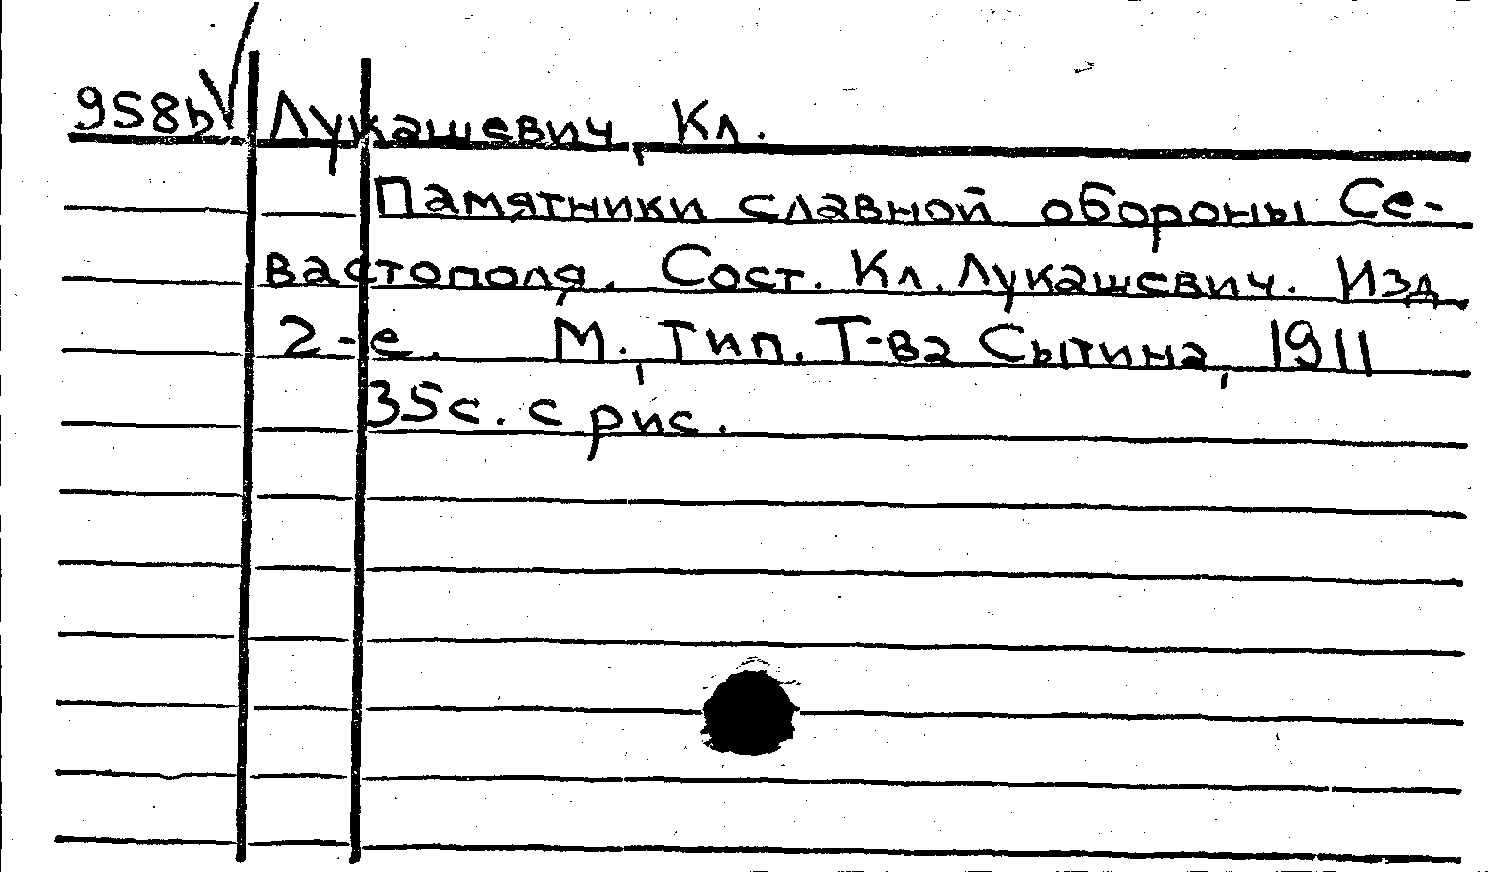 958b Лукашевич, Кл.
Памятники славной обороны Се-
вастополя. Сост. Кл. Лукашевич. Изд
2-е. М. Тип. Т-ва Сытина, 1911
35с. с рис.